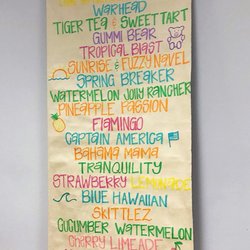 WARHEAD
TIGER TEA & SWEET TART
GUMMI BEAR
TROPICAL BLAST
SUNRISE & FUZZY NAVEL
SPRING BREAKER
WATERMELON JOLLY RANCHER
PINEAPPLE PASSION
FLAMINGO
CAPTAIN AMERICA
BAHAMA MAMA
TRANQUILITY
STRAWBERRY LEMONADE
BLUE HAWAIIAN
SKITTLEZ
CUCUMBER WATERMELON
CHERRY LIMEADE